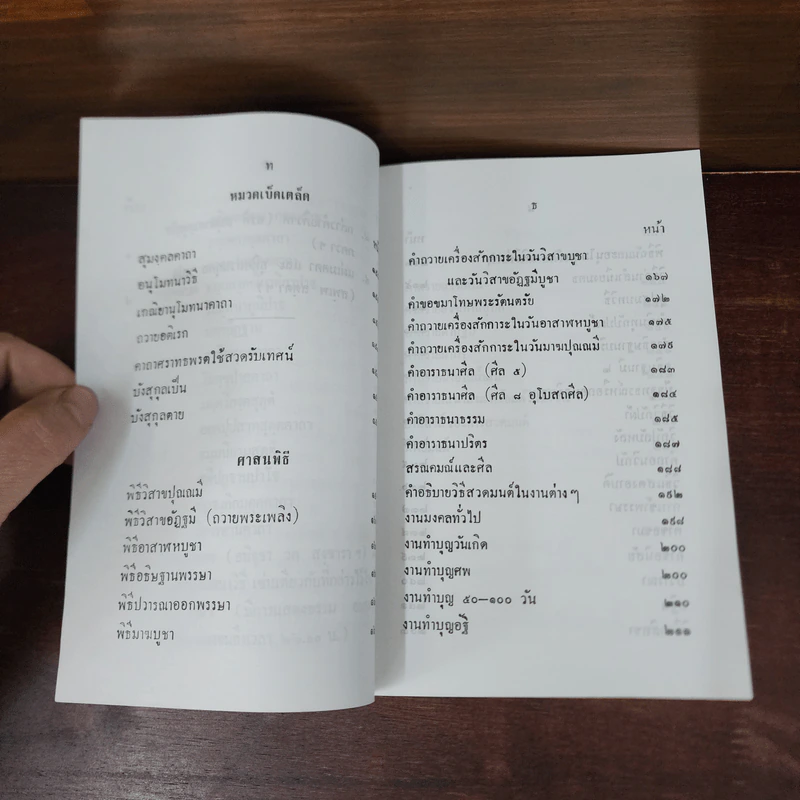 ท
หมวดเบ็ดเตล็ด
สุมงคลคาถา
อนุโมทนาวิธี
เทณิยานุโมทนาคาถา
ถวายอดิเรก
คาถาศราทธพรตใช้สวดรับเทศน์
บังสุกุลเป็น
บังสุกุลตาย
ศาสนพิธี
พิธีวิสาขปุณณมี
พิธีวิสาขอัฏฐมี (ถวายพระเพลิง)
พิธีอาสาฬหบูชา
พิธีอธิษฐานพรรษา
พิธีปวารณาออกพรรษา
พิธีมาฆบูชา
ธ
หน้า
คำถวายเครื่องสักการะในวันวิสาขบูชา
และวันวิสาขอัฏฐมีบูชา ๑๖๗
คำขอขมาโทษพระรัตนตรัย ๑๗๒
คำถวายเครื่องสักการะในวันอาสาฬหบูชา ๑๗๕
คำถวายเครื่องสักการะในวันมาฆปุณณมี ๑๗๙
คำอาราธนาศีล (ศีล ๕) ๑๘๓
คำอาราธนาศีล (ศีล ๘ อุโบสถศีล) ๑๘๔
คำอาราธนาธรรม ๑๘๕
คำอาราธนาปริตร ๑๘๗
สรณคมณ์และศีล ๑๘๘
คำอธิบายวิธีสวดมนต์ในงานต่างๆ ๑๙๒
งานมงคลทั่วไป ๑๙๘
งานทำบุญวันเกิด ๒๐๐
งานทำบุญศพ ๒๐๐
งานทำบุญ ๕๐—๑๐๐ วัน ๒๑๐
งานทำบุญอัฐิ ๒๑๑